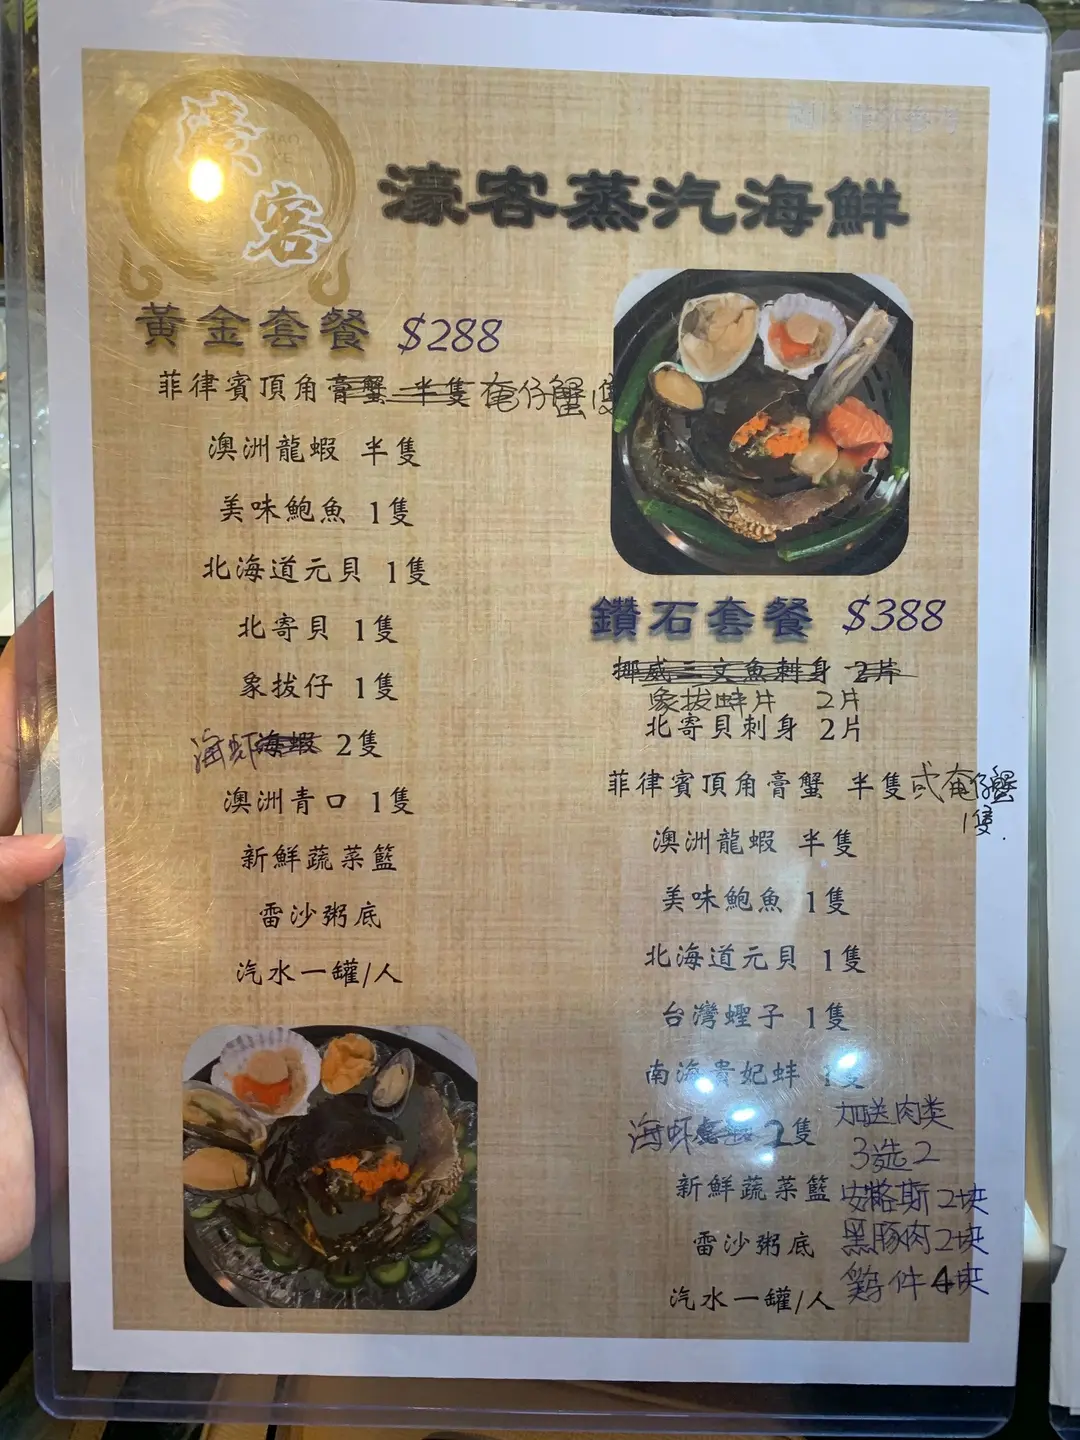 濠
客
濠客蒸汽海鮮
黃金套餐 $288
菲律賓頂角膏蟹 半隻 奄仔蟹1隻
澳洲龍蝦 半隻
美味鮑魚 1隻
北海道元貝 1隻
北寄貝 1隻
象拔仔 1隻
海虾 海蝦 2隻
澳洲青口 1隻
新鮮蔬菜籃
雷沙粥底
汽水一罐/人
鑽石套餐 $388
挪威三文魚刺身 2片
象拔蚌片 2片
北寄貝刺身 2片
菲律賓頂角膏蟹 半隻 或奄仔蟹
1隻.
澳洲龍蝦 半隻
美味鮑魚 1隻
北海道元貝 1隻
台灣蟶子 1隻
南海貴妃蚌 1隻
海虾 2隻
加送肉类
3选2
新鮮蔬菜籃
安格斯2块
雷沙粥底
黑豚肉2块
汽水一罐/人
鸡件4块